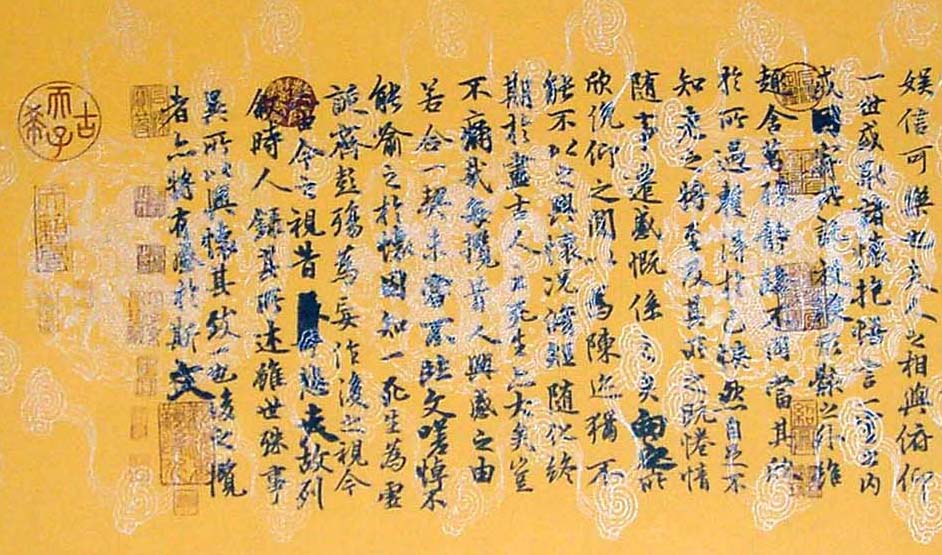 娛信可樂也夫人之相與俯仰
一世或取諸懷抱悟言一室之內
或因寄所託放浪形骸之外雖
趣舍萬殊靜躁不同當其欣
於所遇蹔得於己怏然自足不
知老之將至及其所之既惓情
隨事遷感慨係之矣向之所
欣俛仰之間以為陳迹猶不
能不以之興懷況脩短隨化終
期於盡古人云死生亦大矣豈
不痛哉每攬昔人興感之由
若合一契未嘗不臨文嗟悼不
能喻之於懷固知一死生為虛
誕齊彭殤為妄作後之視今
由今之視昔悲夫故列
敘時人錄其所述雖世殊事
異所以興懷其致一也後之攬
者亦將有感於斯文
古希天子